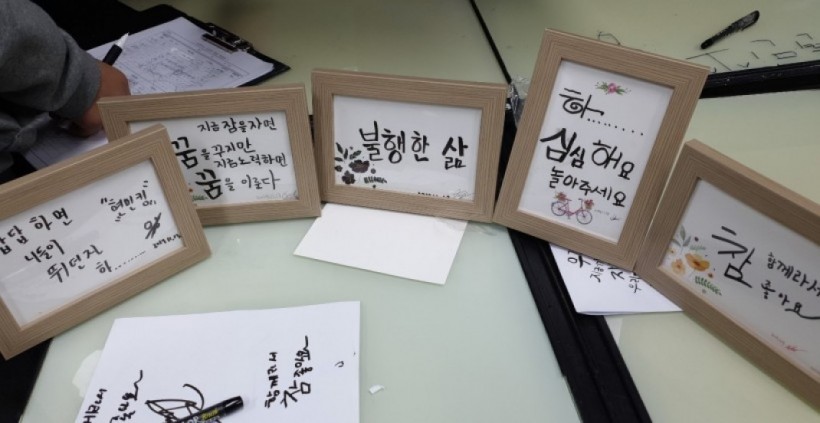 답답하면
니들이
뛰던지
하.........
"형인킹"
지금 잠을자면
꿈을 꾸지만
지금노력하면
꿈을 이룬다
불행한 삶
하.........
심심해요
놀아주세요
참 함께라서
좋아요
함께라서
참 좋아요